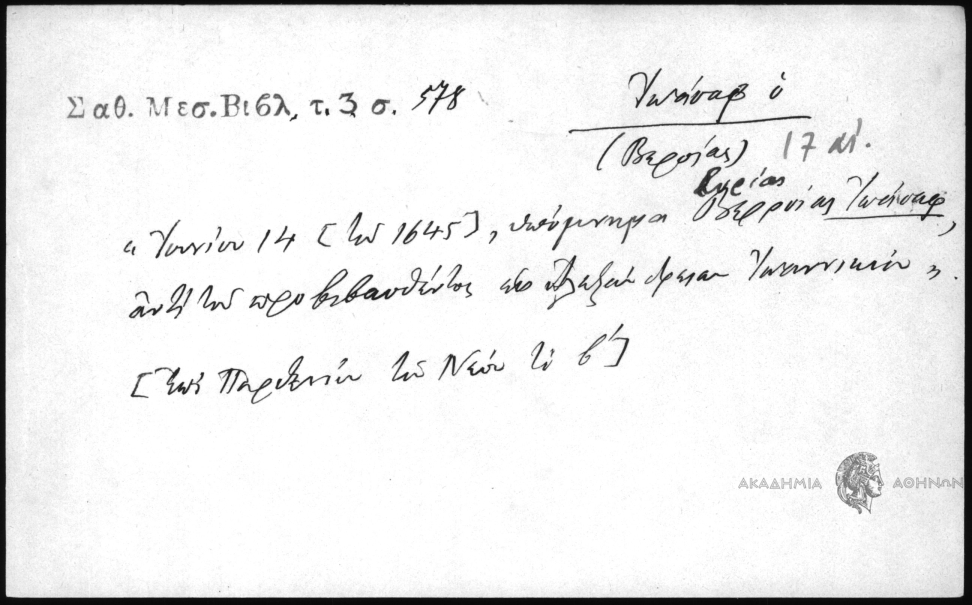 Σαθ. Μεσ. Βιβλ, τ. 3 σ. 578
Ἰωάσαφ ὁ
(Βερροίας) 17 αἰ.
« Ἰουνίου 14 [τοῦ 1645], ὑπόμνημα Βερροίας Ἰωάσαφ,
ἀντὶ τοῦ προβιβασθέντος εἰς Ἀλεξάνδρειαν Ἰωαννικίου ».
[ἐπὶ Παρθενίου τοῦ Νέου τοῦ β´]
ΑΚΑΔΗΜΙΑ ΑΘΗΝΩΝ